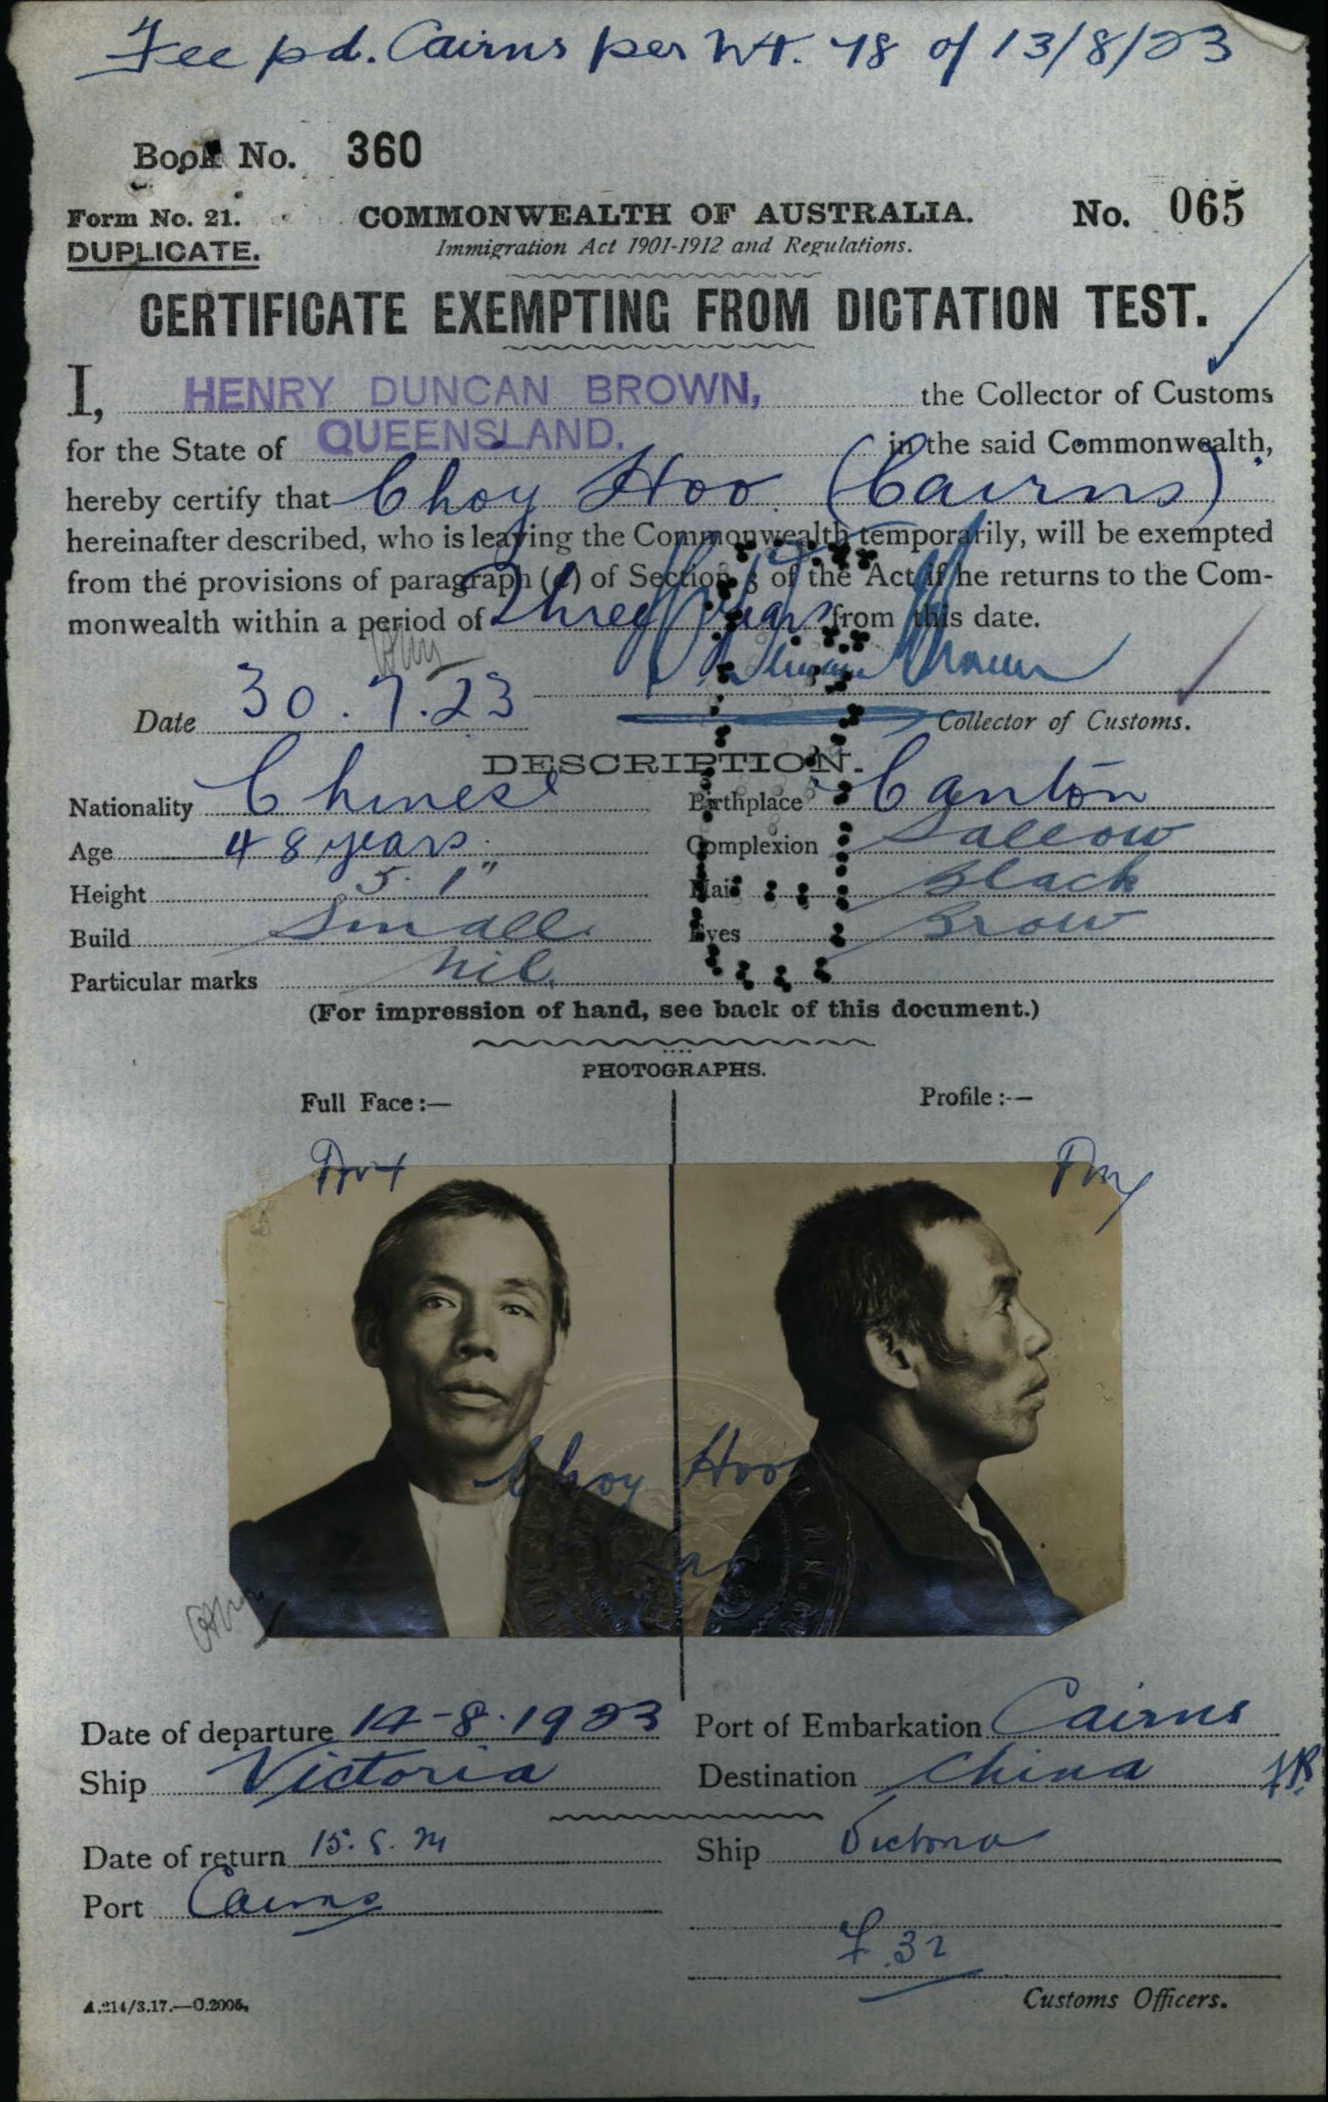 Fee pd. Cairns per No. 78 of 13/8/23
Book No. 360
Form No. 21. COMMONWEALTH OF AUSTRALIA. No. 065
DUPLICATE. Immigration Act 1901-1912 and Regulations.
CERTIFICATE EXEMPTING FROM DICTATION TEST.
I, HENRY DUNCAN BROWN, the Collector of Customs
for the State of QUEENSLAND. in the said Commonwealth,
hereby certify that Choy Hoo (Cairns)
hereinafter described, who is leaving the Commonwealth temporarily, will be exempted
from the provisions of paragraph (a) of Section 3 of the Act if he returns to the Com-
monwealth within a period of Three years from this date.
Date 30.7.23 Collector of Customs.
DESCRIPTION.
Nationality Chinese Birthplace Canton
Age 48 years Complexion Sallow
Height 5. 1" Hair Black
Build Small Eyes Brow
Particular marks nil.
(For impression of hand, see back of this document.)
PHOTOGRAPHS.
Full Face :— Profile :—
Choy Hoo
Date of departure 14-8-1923 Port of Embarkation Cairns
Ship Victoria Destination China
Date of return 15.8.24 Ship Victoria
Port Cairns
F.32
A.214/3.17.—C.2005. Customs Officers.